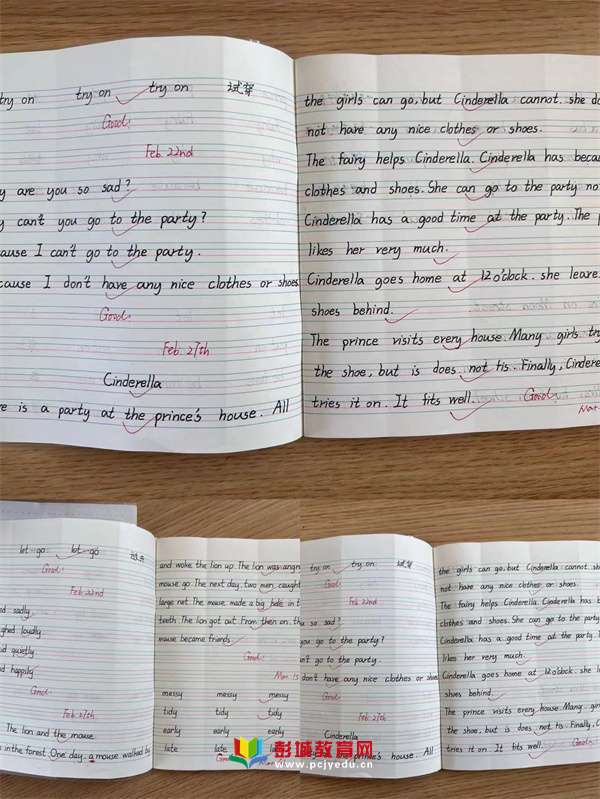 try on try on try on 试穿
Good!
Feb. 22nd
are you so sad?
can't you go to the party?
I can't go to the party.
I don't have any nice clothes or shoes
Good!
Feb. 27th
Cinderella
is a party at the prince's house. All
the girls can go, but Cinderella cannot. she do
not have any nice clothes or shoes.
The fairy helps Cinderella. Cinderella has
clothes and shoes. She can go to the party
Cinderella has a good time at the party. The
likes her very much.
Cinderella goes home at 12 o'clock. she
shoes behind.
The prince visits every house. Many girls try
the shoe, but is does not fis. Finally,
tries it on. It fits well. Good!
Mar.
go go
Good!
Feb. 22nd
sadly
loudly
quietly
happily
Good!
Feb. 27th
The lion and the mouse
in the forest. One day, a mouse walked by
and woke the lion up. The lion was
mouse go. The next day, two men caught
large net. The mouse made a big in
teeth. The lion got out. From then on,
mouse became friends.
Good!
Mar.
messy messy messy
tidy tidy tidy
early early early
late late late
try on try on 试穿
Good!
Feb. 22nd
so sad?
you go to the party?
can't go to the party.
don't have any nice clothes or shoes
Good!
Feb. 27th
Cinderella
the prince's house. All
the girls can go, but Cinderella cannot. she
not have any nice clothes or shoes.
The fairy helps Cinderella. Cinderella has
clothes and shoes. She can go to the party
Cinderella has a good time at the party. The
likes her very much.
Cinderella goes home at 12 o'clock. she
shoes behind.
The prince visits every house. Many
the shoe, but is does not fis. Finally,
tries it on. It fits well. Good!
彭城教育网
www.pcjyedu.cn